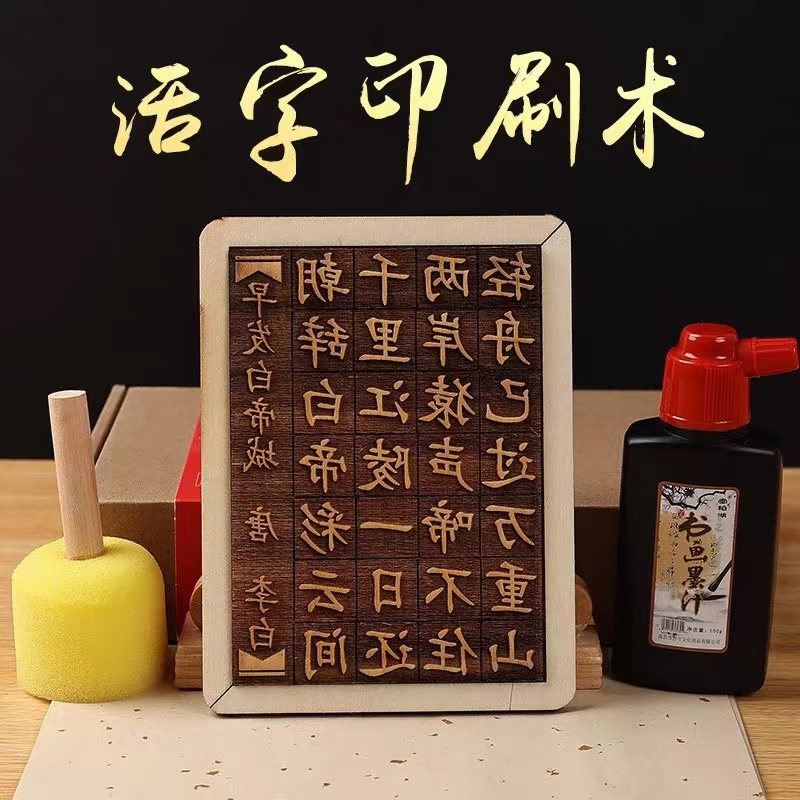 活字印刷术
早发白帝城 唐 李白
朝辞白帝彩云间
千里江陵一日还
两岸猿声啼不住
轻舟已过万重山
书画墨汁
净含量:100g